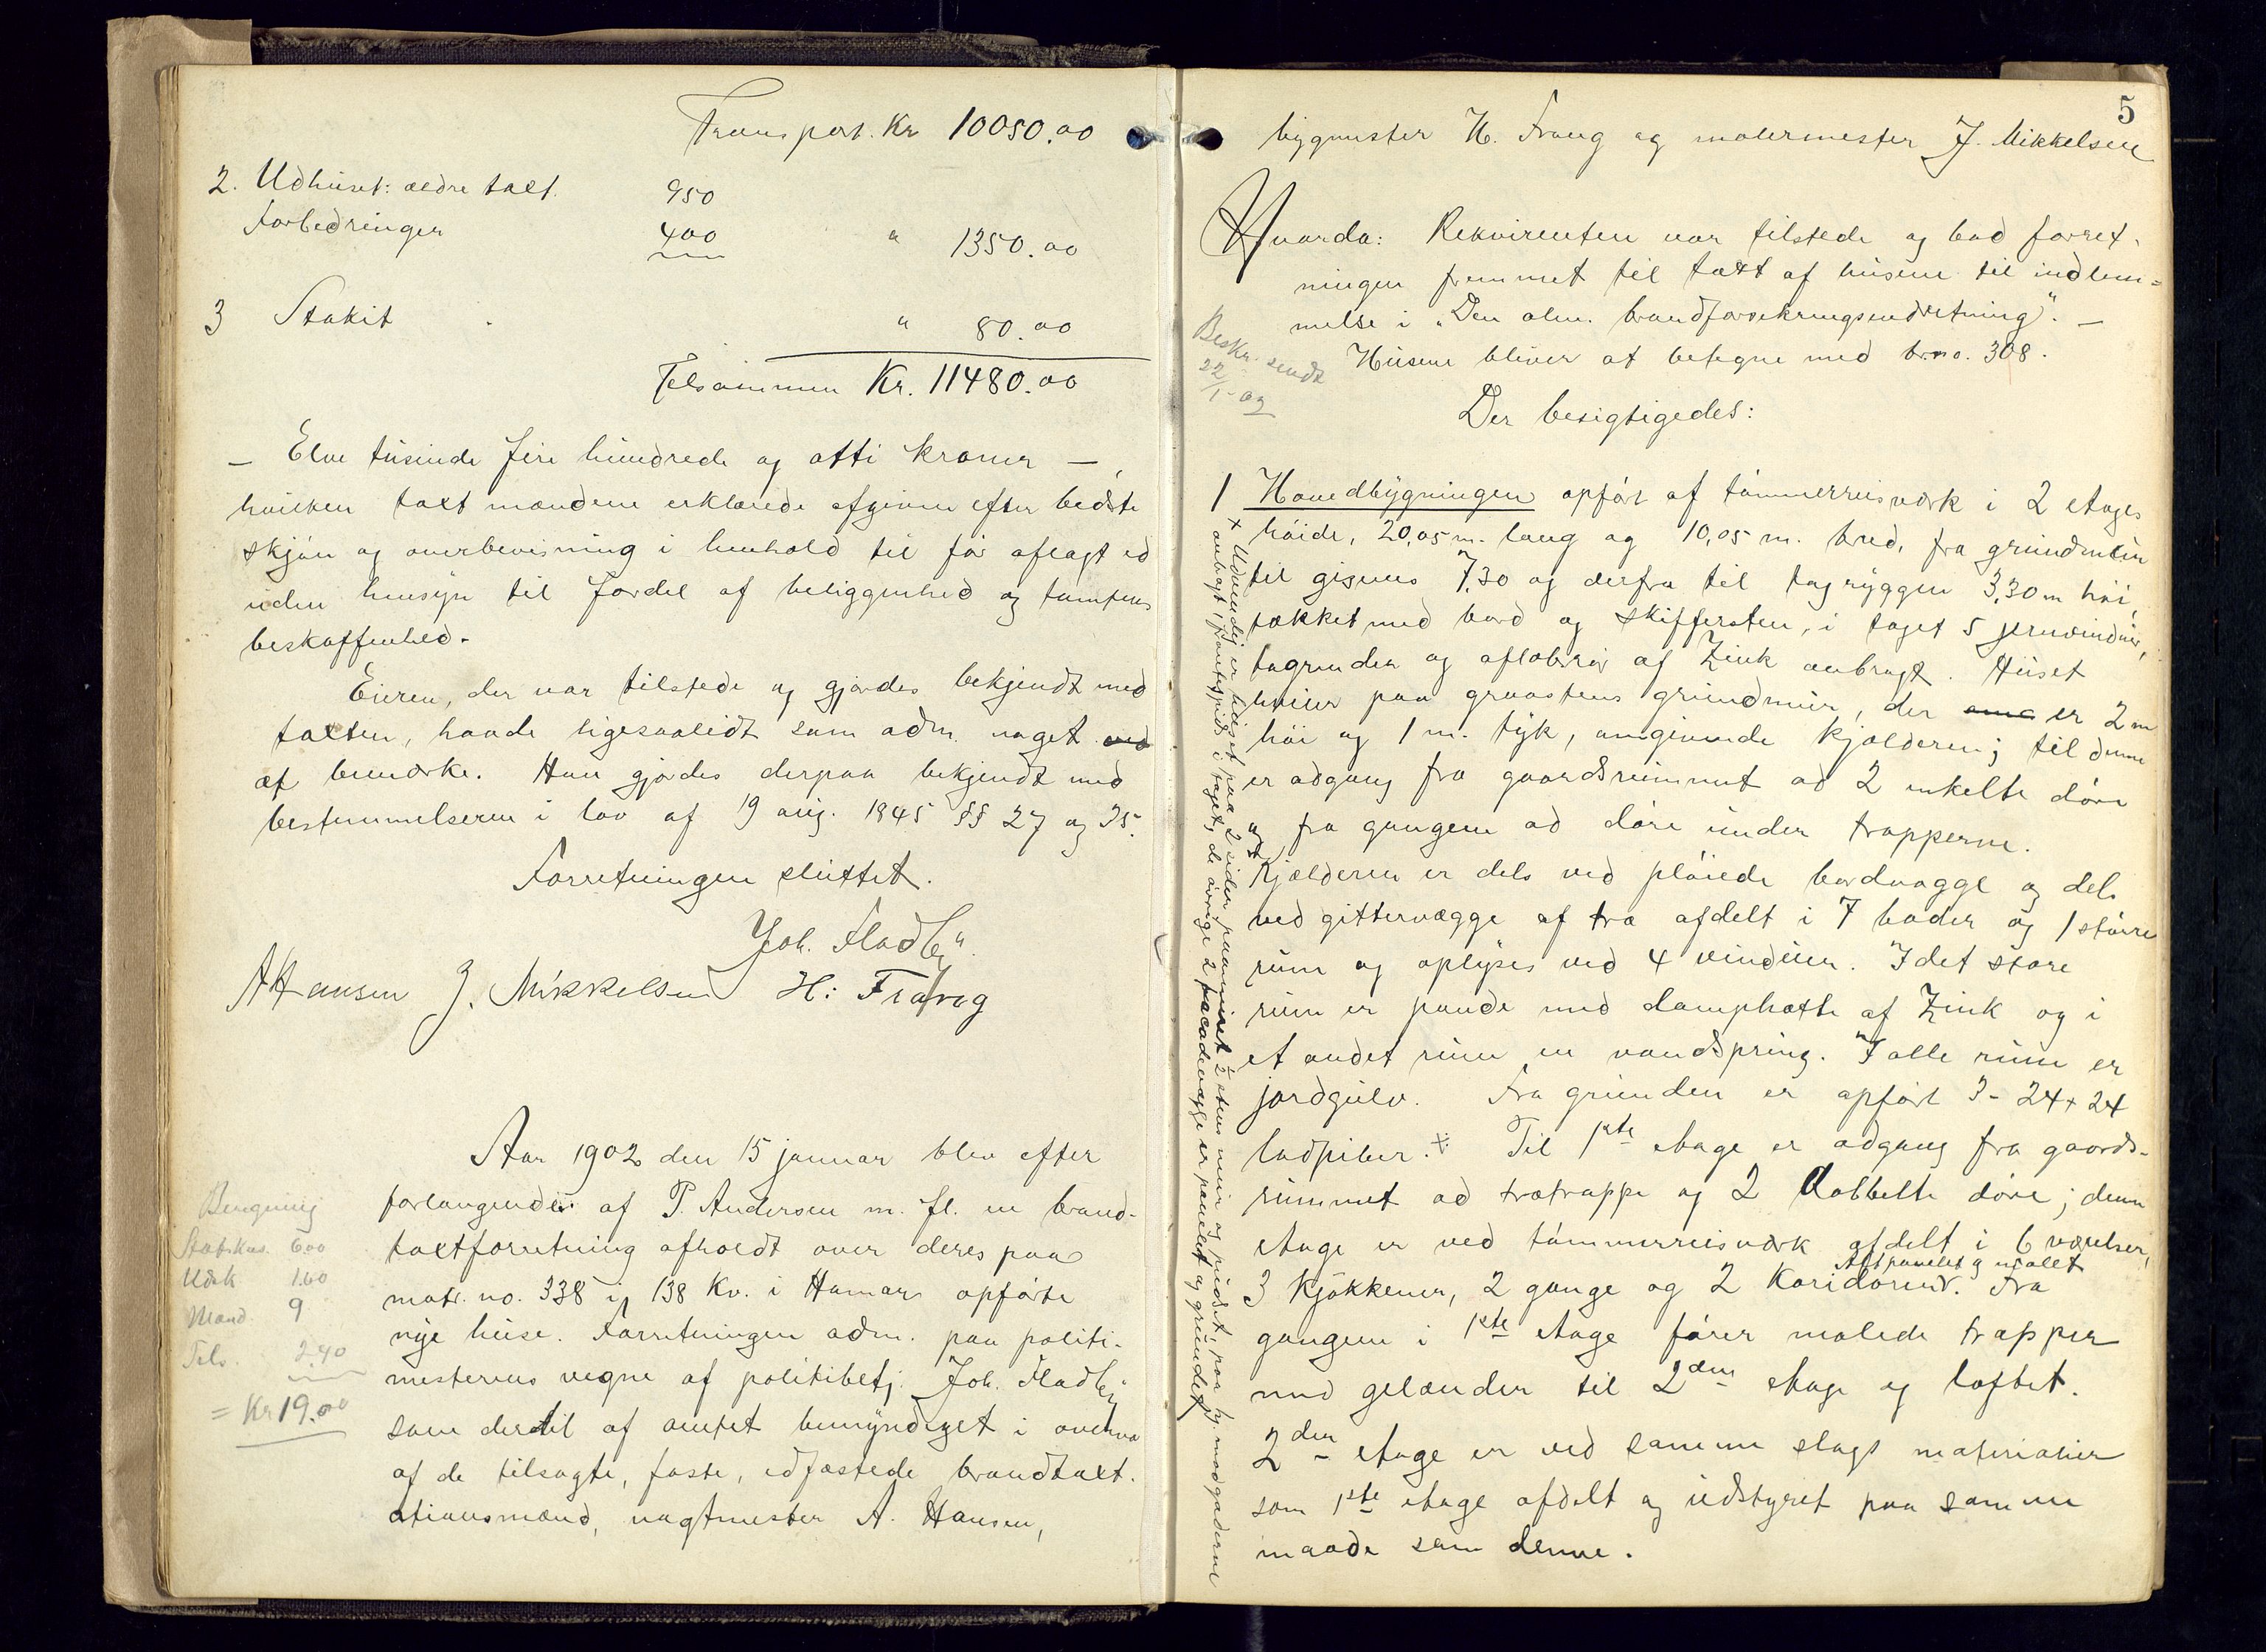 Transport. Kr 10050.00
2. Udhuset: ældre taxt. 950
Forbedringer 400 " 1350.00
3 Stakit " 80.00
Tilsammen Kr. 11480.00
– Elve tusinde fire hundrede og otti kroner –,
hvilken taxt mændene erklærede afgiven efter bedste
skjøn og overbevisning i henhold til før aflagt ed
uden hensyn til fordel af beliggenhed og tomtens
beskaffenhed.
Eieren, der var tilstede og gjordes bekjendt med
taxten, havde ligesaalidt som adm. noget
at bemærke. Han gjordes derpaa bekjendt med
bestemmelserne i lov af 19 aug. 1845 §§ 27 og 25.
Forretningen sluttet.
Joh. Fladby.
A Hansen J. Mikkelsen H: Frang
Aar 1902 den 15 januar blev efter
forlangende af P. Andersen m. fl. en brand-
taxtforretning afholdt over deres paa
matr. no. 338 i 138 Kv. i Hamar opførte
nye huse. Forretningen adm. paa politi-
mesterens vegne af politibetj. Joh. Fladby
som dertil af amtet bemyndiget i overvær
af de tilsagte, faste, edfæstede brandtaxt-
ationsmænd, vagtmester A. Hansen,
Beregning
Statskas. 600
Udsk 160
Mænd. 9
Tils. 2.40
= Kr 19.00
5
bygmester H. Frang og malermester J. Mikkelsen
Hvorda: Rekvirenten var tilstede og bad forret-
ningen fremmet til taxt af husene til indlem=
melse i "Den alm. brandforsikringsindretning". –
Husene bliver at betegne med br.no. 308.
Beskr. sendt
22/1-02
Der besigtigedes:
1 Hovedbygningen opført af tømmerreisværk i 2 etages
høide, 20,05 m. lang og 10,05 m. bred, fra grundmur
til gisens 7,30 og derfra til tagryggen 3,30 m høi,
tækket med bord og skiffersten, i taget 5 jernvinduer,
tagrender og afløbsrør af Zink anbragt. Huset
hviler paa graastens grundmur, der er 2 m
høi og 1 m. tyk, omgivende kjælderen; til denne
er adgang fra gaardsrummet ad 2 enkelte døre
og fra gangene ad døre under trapperne.
Kjælderen er dels ved pløiede bordvægge og dels
ved gittervægge af træ afdelt i 7 boder og 1 større
rum og oplyses ved 4 vinduer. I det store
rum er pande med damphætte af Zink og i
et andet rum en vandspring. I alle rum er
jordgulv. Fra grunden er opført 3 - 24 x 24
ladpiber. x Til 1ste etage er adgang fra gaards-
rummet ad trætrappe og 2 dobbelte døre; denne
etage er ved tømmerreisværk afdelt i 6 værelser,
3 Kjøkkener, 2 gange og 2 Koridorer. Alt panelet og malet Fra
gangene i 1ste etage fører malede trapper
med gelænder til 2den etage og loftet.
2den etage er ved samme slags materialier
som 1ste etage afdelt og udstyret paa samme
maade som denne.
x Udvendig er huset paa 2 sider paamuret ½ stens mur og pudset, paa hj. mod gaderne
anbragt frontspids i taget, de øvrige 2 facadevægge er panelet og grundet